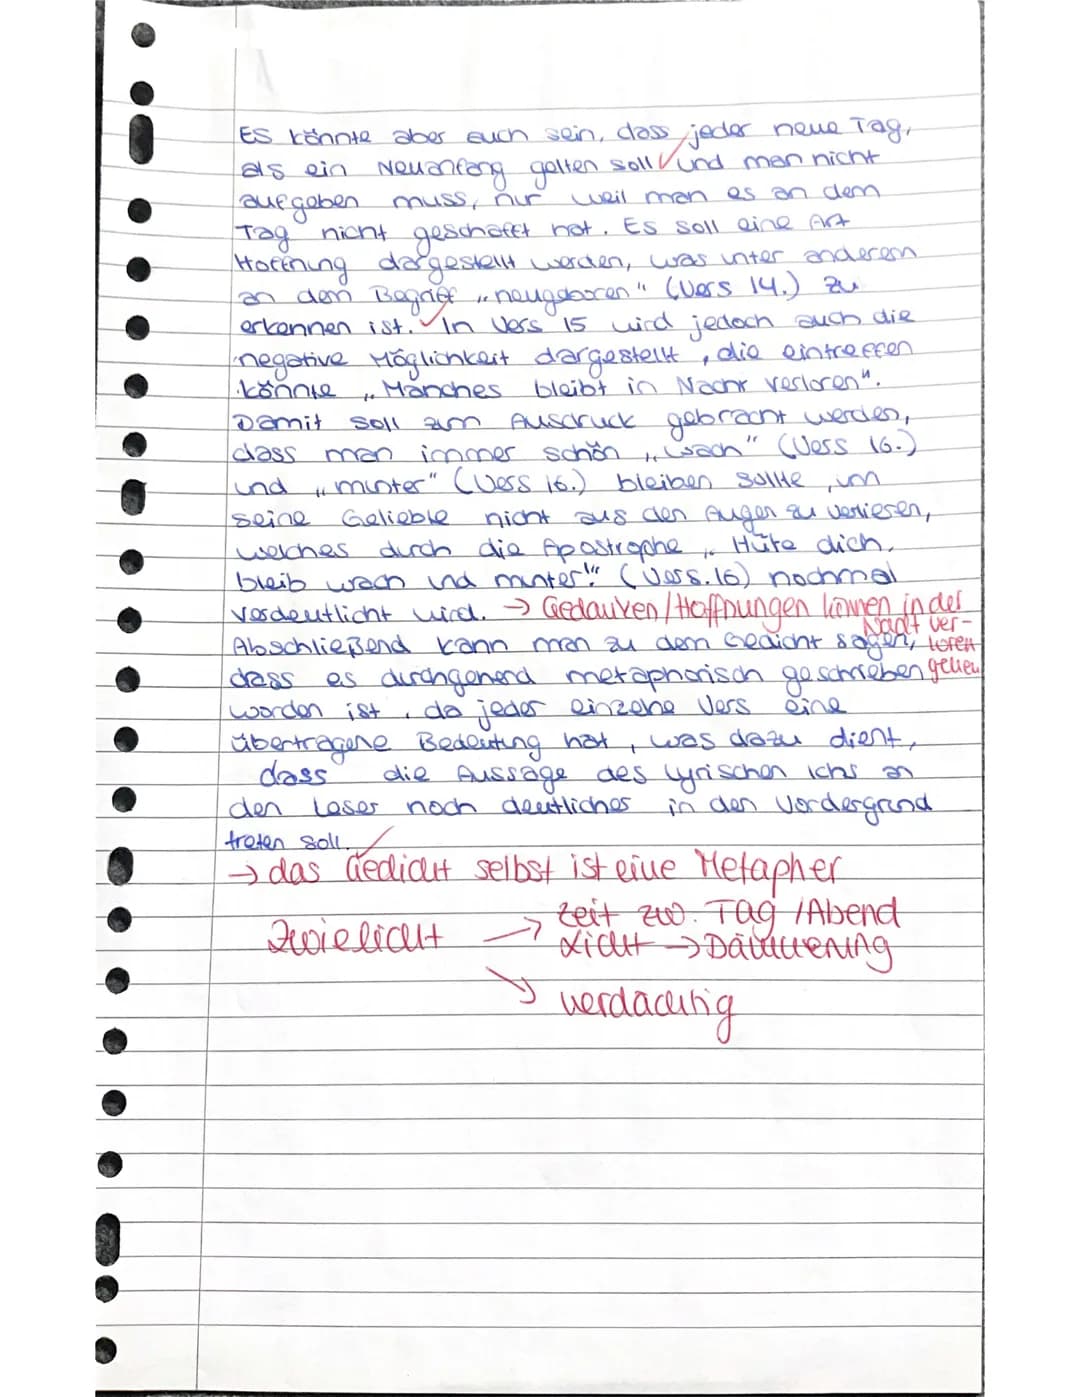 Es könnte aber auch sein, dass jeder neue Tag,
als ein Neuanfang gelten soll und man nicht
aufgeben muss, nur weil man es an dem
Tag nicht geschafft hat. Es soll eine Art
Hoffnung dargestellt werden, was unter anderem
an dem Begriff „neugeboren" (Vers 14.) zu
erkennen ist. In Vers 15 wird jedoch auch die
negative Möglichkeit dargestellt, die eintreffen
könnte „Manches bleibt in Nacht verloren".
Damit soll zum Ausdruck gebracht werden,
dass man immer schön „wach" (Vers 16.)
und „munter" (Vers 16.) bleiben sollte, um
seine Geliebte nicht aus den Augen zu verliesen,
welches durch die Apostrophe „Hüte dich,
bleib wach und munter!" (Vers. 16) nochmal
verdeutlicht wird. → Gedanken/Hoffnungen können in der
Nacht ver-
Abschließend kann man zu dem Gedicht sagen, loren
dass es durchgehend metaphorisch geschrieben gehen
worden ist, da jeder einzelne Vers eine
übertragene Bedeutung hat, was dazu dient,
dass die Aussage des lyrischen Ichs an
den Leser noch deutlicher in den Vordergrund
treten soll.
→ das Gedicht selbst ist eine Metapher
Zwielicht → Zeit zw. Tag /Abend
Licht → Dämmerung
↘ verdächtig